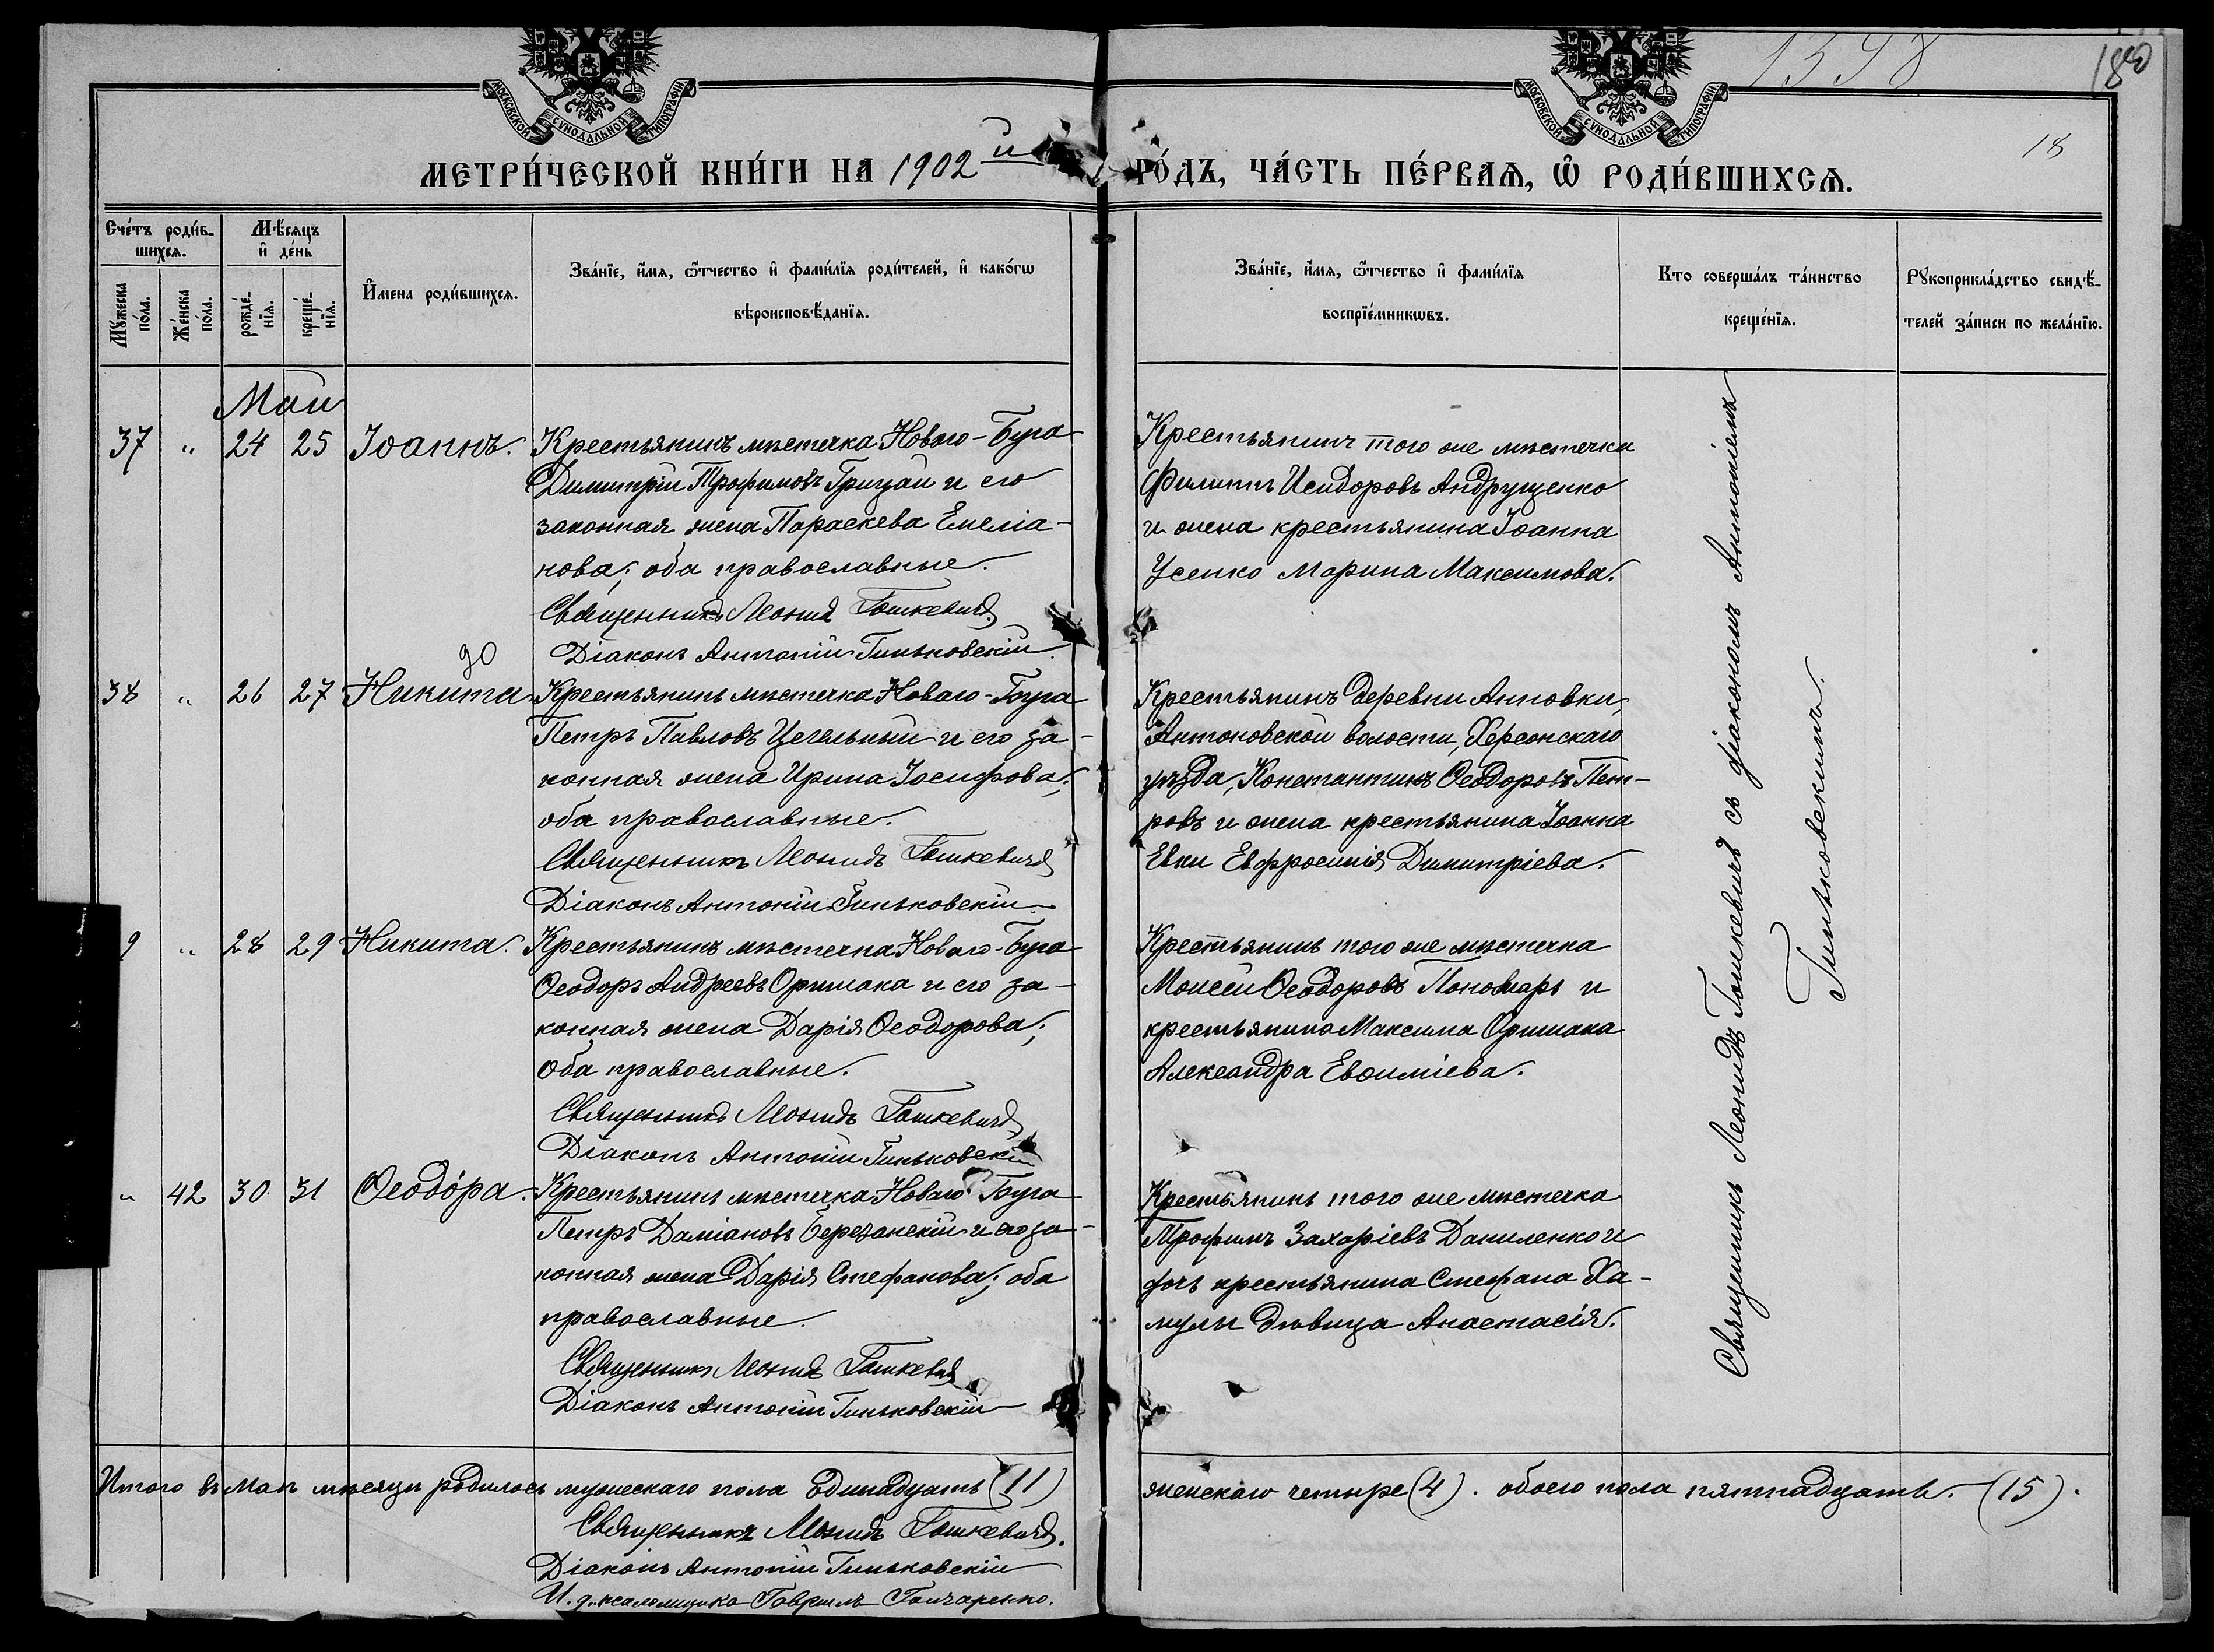 МОСКОВСКОЙ СѴНОДАЛЬНОЙ ТИПОГРАФІИ
МОСКОВСКОЙ СѴНОДАЛЬНОЙ ТИПОГРАФІИ
1398
180
18
МЕТРИ́ЧЕСКОЙ КНИ́ГИ НА 1902 й
ГО́ДЪ, ЧА́СТЬ ПЕ́РВАѦ, Ѡ҆ РОДИ́ВШИХСѦ.
Сче́тъ роди́в-
шихсѧ.
Мꙋ́жеска по́ла.
Же́нска по́ла.
Мѣ́сѧцъ
и҆ де́нь
рожде́-
нїѧ.
креще́-
нїѧ.
И҆мена роди́вшихсѧ.
Зва́нїе, и҆́мѧ, ѻ҆́тчество и҆ фами́лїѧ роди́телей, и҆ како́гѡ
вѣроисповѣ́данїѧ.
Зва́нїе, и҆́мѧ, ѻ҆́тчество и҆ фами́лїѧ
воспрїе́мникѡвъ.
Кто соверша́лъ та́инство
креще́нїѧ.
Рꙋкоприкла́дство свидѣ́-
телей за́писи по жела́нїю.
Май
37 " 24 25 Іоаннъ.
Крестьянинъ мѣстечка Новаго-Буга
Димитрій Трофимовъ Грицай и его
законная жена Параскева Емеліа-
нова; оба православные.
Священникъ Леонид Гошкевичъ.
Діаконъ Антоній Гиньковскій.
Крестьянинъ того же мѣстечка
Филиппъ Исидоровъ Андрущенко
и жена крестьянина Іоанна
Усенко Марина Максимова.
38 " 26 27 Никита
Крестьянинъ мѣстечка Новаго-Буга
Петръ Павловъ Цегельный и его за-
конная жена Ирина Іосифова;
оба православные.
Священникъ Леонидъ Гошкевичъ
Діаконъ Антоній Гиньковскій
Крестьянинъ деревни Анновки,
Антоновской волости, Херсонскаго
уѣзда, Константинъ Ѳеодоровъ Пет-
ровъ и жена крестьянина Іоанна
Евки Евфросинія Димитріева.
9 " 28 29 Никита.
Крестьянинъ мѣстечка Новаго-Буга
Ѳеодоръ Андреевъ Оришака и его за-
конная жена Дарія Ѳеодорова;
оба православные.
Священникъ Леонидъ Гошкевичъ
Діаконъ Антоній Гиньковскій
Крестьянинъ того же мѣстечка
Моисей Ѳеодоровъ Пономарь и
крестьянина Максима Оришака
Александра Евѳиміева.
" 42 30 31 Ѳеодора.
Крестьянинъ мѣстечка Новаго Буга
Петръ Даміановъ Березанскій и его за-
конная жена Дарія Стефанова; оба
православные.
Священникъ Леонид Гошкевичъ
Діаконъ Антоній Гиньковскій
Крестьянинъ того же мѣстечка
Трофимъ Захаріевъ Даниленко и
дочь крестьянина Стефана Ха-
мулы дѣвица Анастасія.
Священникъ Леонидъ Гошкевичъ съ діакономъ Антоніемъ
Гиньковскимъ.
Итого въ маѣ мѣсяцѣ родилось мужескаго пола одинадцать (11)
женскаго четыре (4). обоего пола пятнадцать. (15).
Священникъ Леонидъ Гошкевичъ.
Діаконъ Антоній Гиньковскій
И. д. псаломщика Гавріилъ Гончаренко.